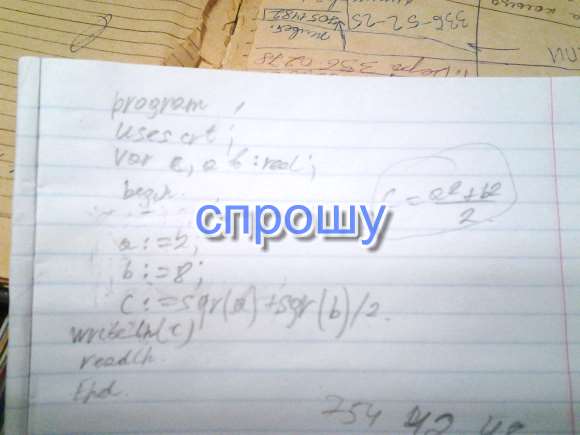 336-52-25
program ,
uses crt;
var c, a b:real;
begin
c = a2+b2
2
спрошу
a:=2;
b:=8;
c:=sqr(a)+sqr(b)/2.
writeln(c)
readln
End.
754 42 48